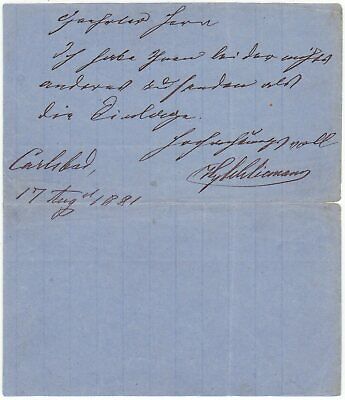 Geehrter Herr
Ich habe Ihnen leider nichts
anderes zu senden als
die Einlage.
Hochachtungsvoll
HySchliemann
Carlsbad,
17 Augst 1881